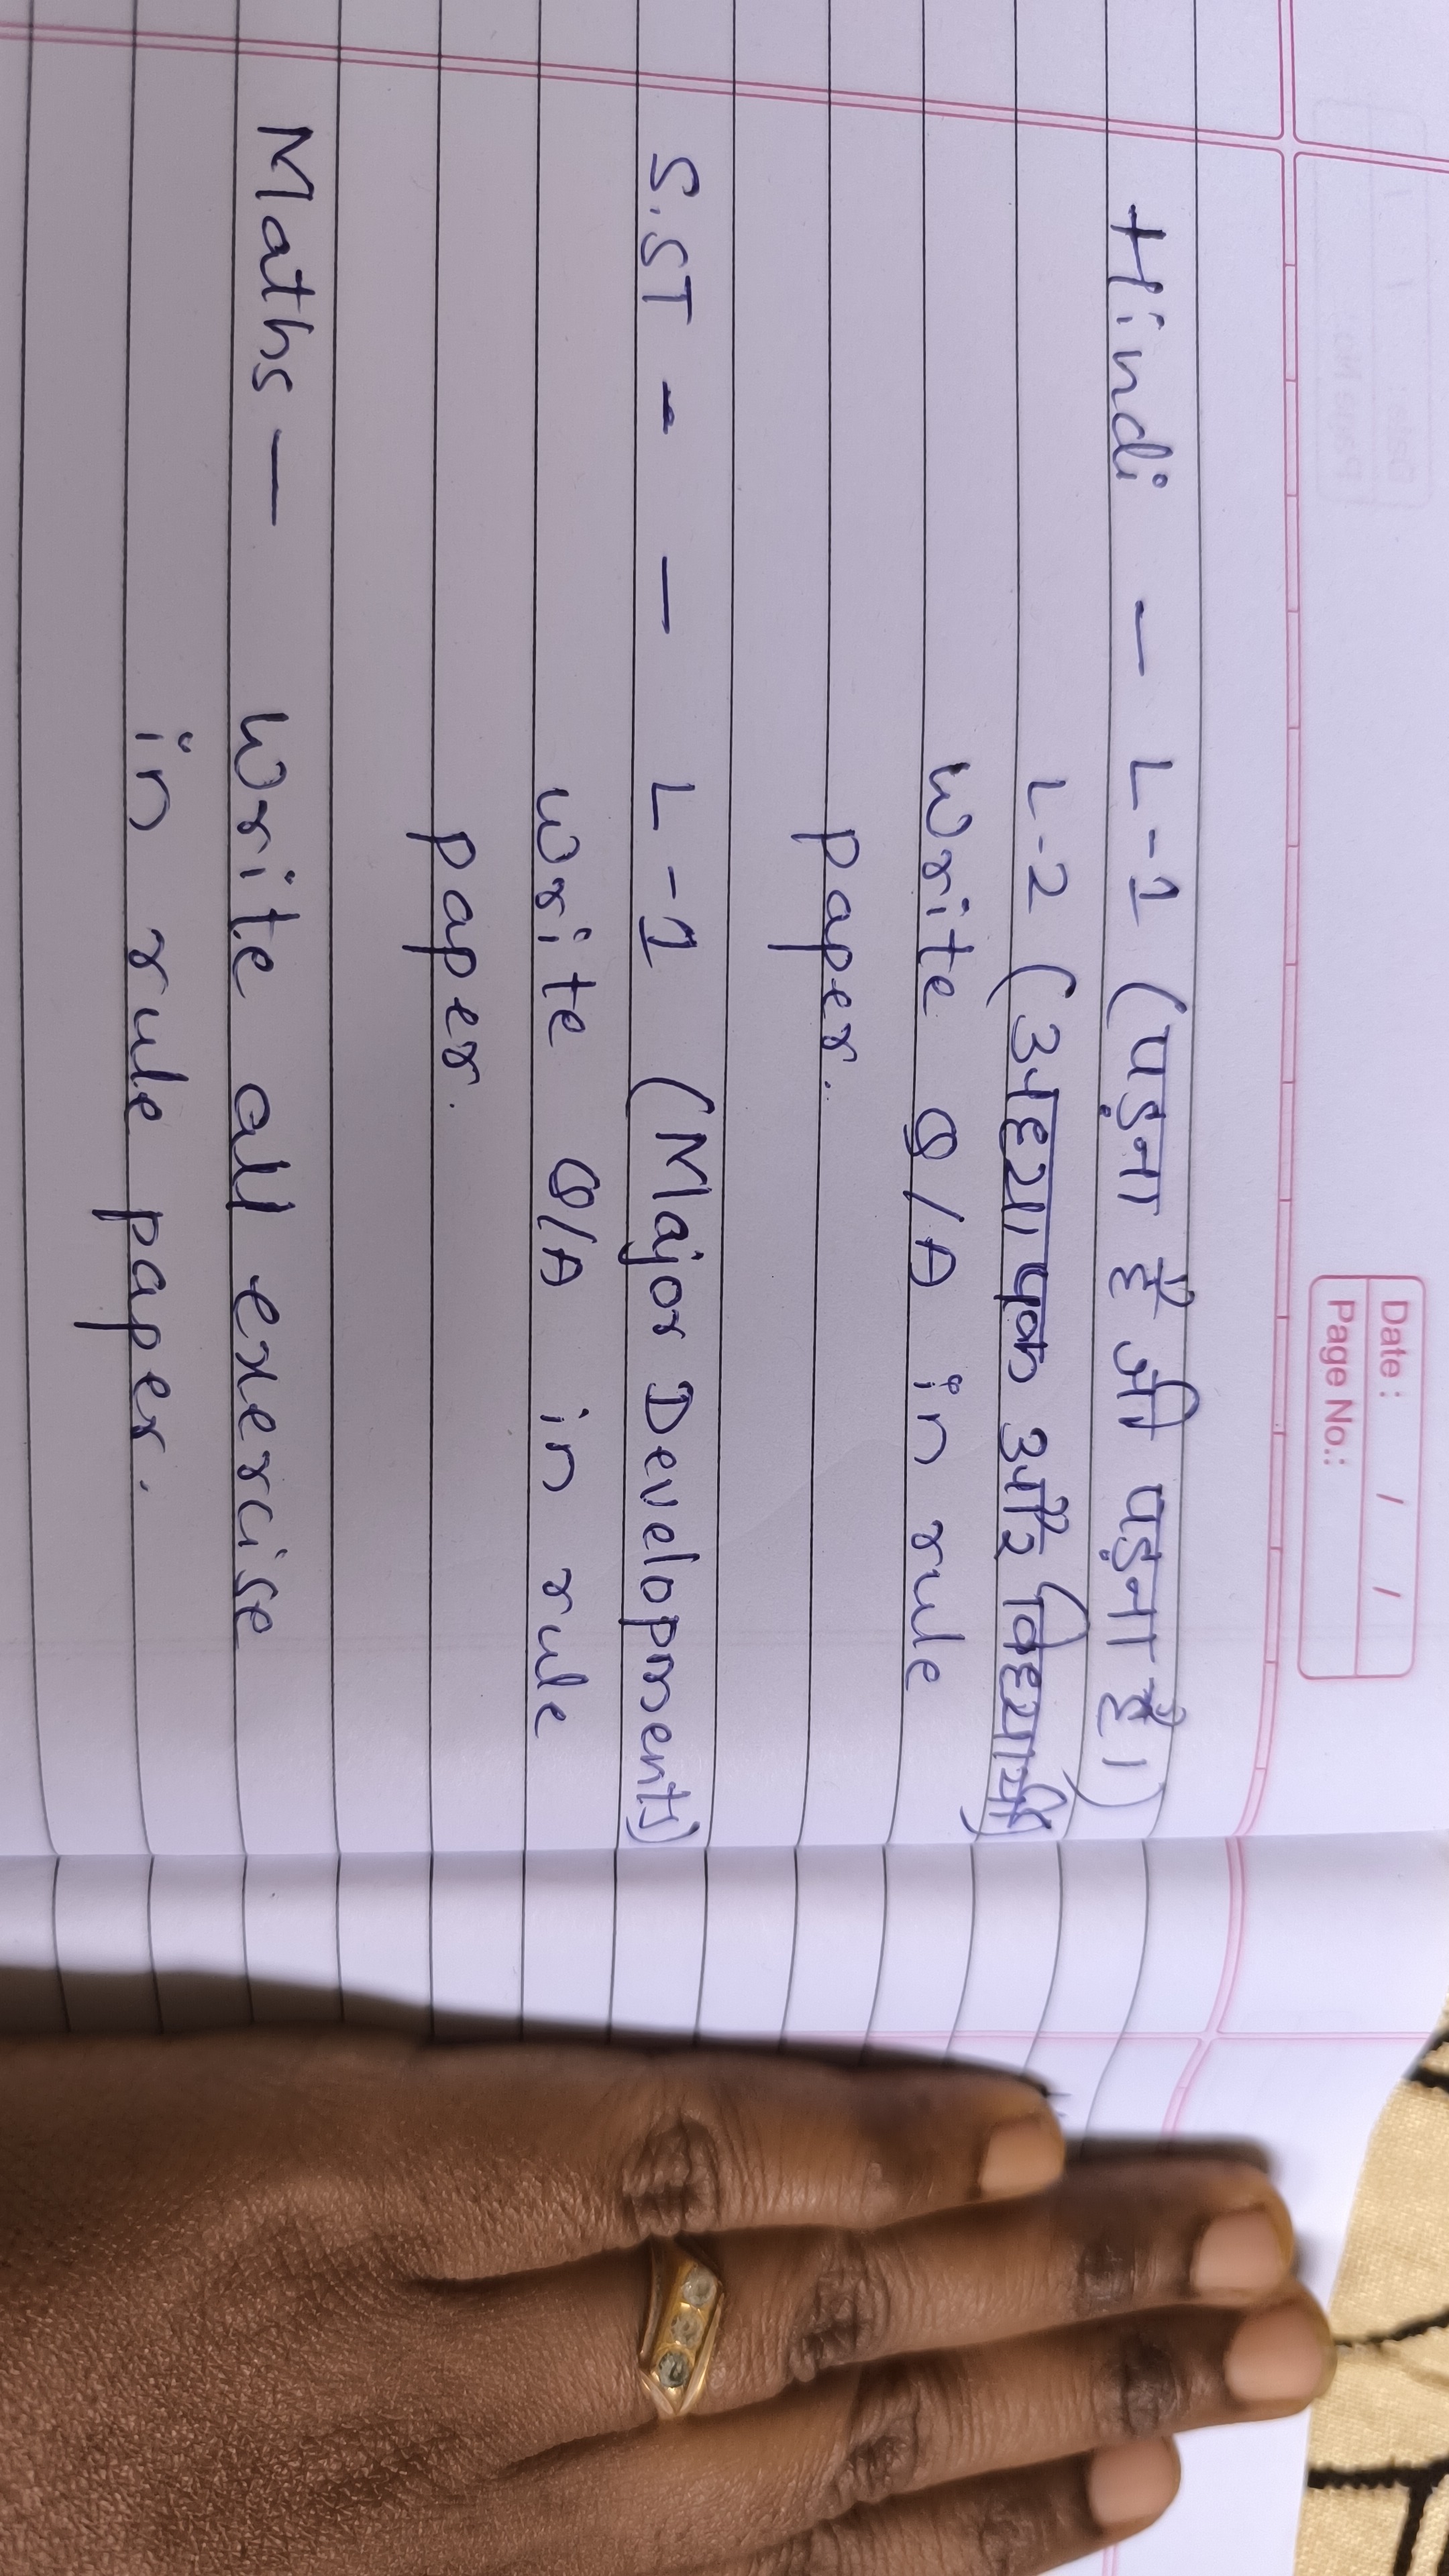 Date : / /
Page No.:
Hindi - L-1 (पड़ना है जी पड़ना है।)
L-2 (अध्यापक और विद्यार्थी)
write Q/A in rule
paper.
S.ST - - L-1 (Major Developments)
write Q/A in rule
paper.
Maths - write all exercise
in rule paper.